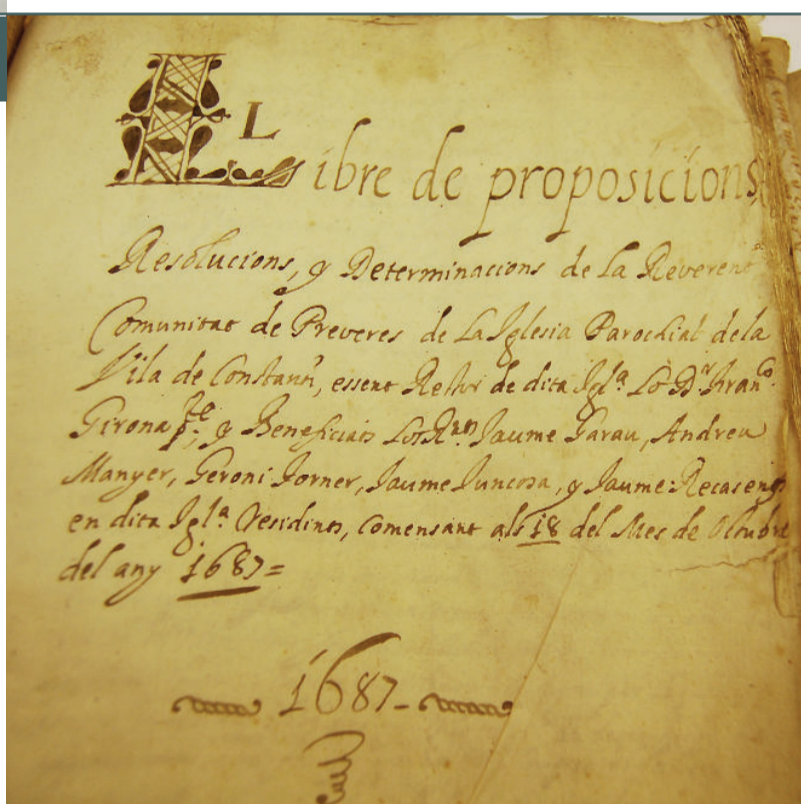 Libre de proposicions,
Resolucions, y Determinacions de la Reverent
Comunitat de Preveres de La Iglesia Parochial dela
Vila de Constantí, essent Rector de dita Igl.ª Lo D.r Fran.co
Girona, y Beneficiats Los R.nts Jaume Garau, Andreu
Manyer, Geroni Forner, Jaume Juncosa, y Jaume Recasens
en dita Igl.ª residints, comensant als 18 del Mes de Octubre
del any 1687=
1687